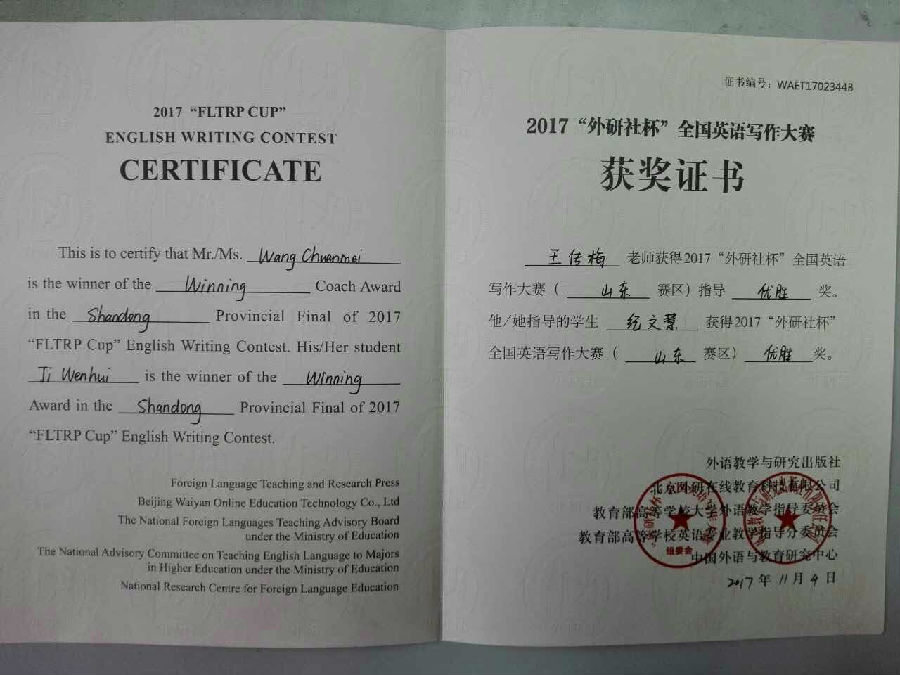 2017 “FLTRP CUP”
ENGLISH WRITING CONTEST
CERTIFICATE
This is to certify that Mr./Ms. Wang Chuanmei
is the winner of the Winning Coach Award
in the Shandong Provincial Final of 2017
“FLTRP Cup” English Writing Contest. His/Her student
Ji Wenhui is the winner of the Winning
Award in the Shandong Provincial Final of 2017
“FLTRP Cup” English Writing Contest.
Foreign Language Teaching and Research Press
Beijing Waiyan Online Education Technology Co., Ltd
The National Foreign Languages Teaching Advisory Board
under the Ministry of Education
The National Advisory Committee on Teaching English Language to Majors
in Higher Education under the Ministry of Education
National Research Centre for Foreign Language Education
证书编号：WAET17023448
2017 “外研社杯” 全国英语写作大赛
获奖证书
王传梅 老师获得2017 “外研社杯” 全国英语
写作大赛（ 山东 赛区）指导 优胜 奖。
他/她指导的学生 纪文慧 获得2017 “外研社杯”
全国英语写作大赛（ 山东 赛区） 优胜 奖。
外语教学与研究出版社
北京外研在线教育科技有限公司
教育部高等学校大学外语教学指导委员会
教育部高等学校英语专业教学指导分委员会
中国外语与教育研究中心
组委会
2017 年 11 月 9 日